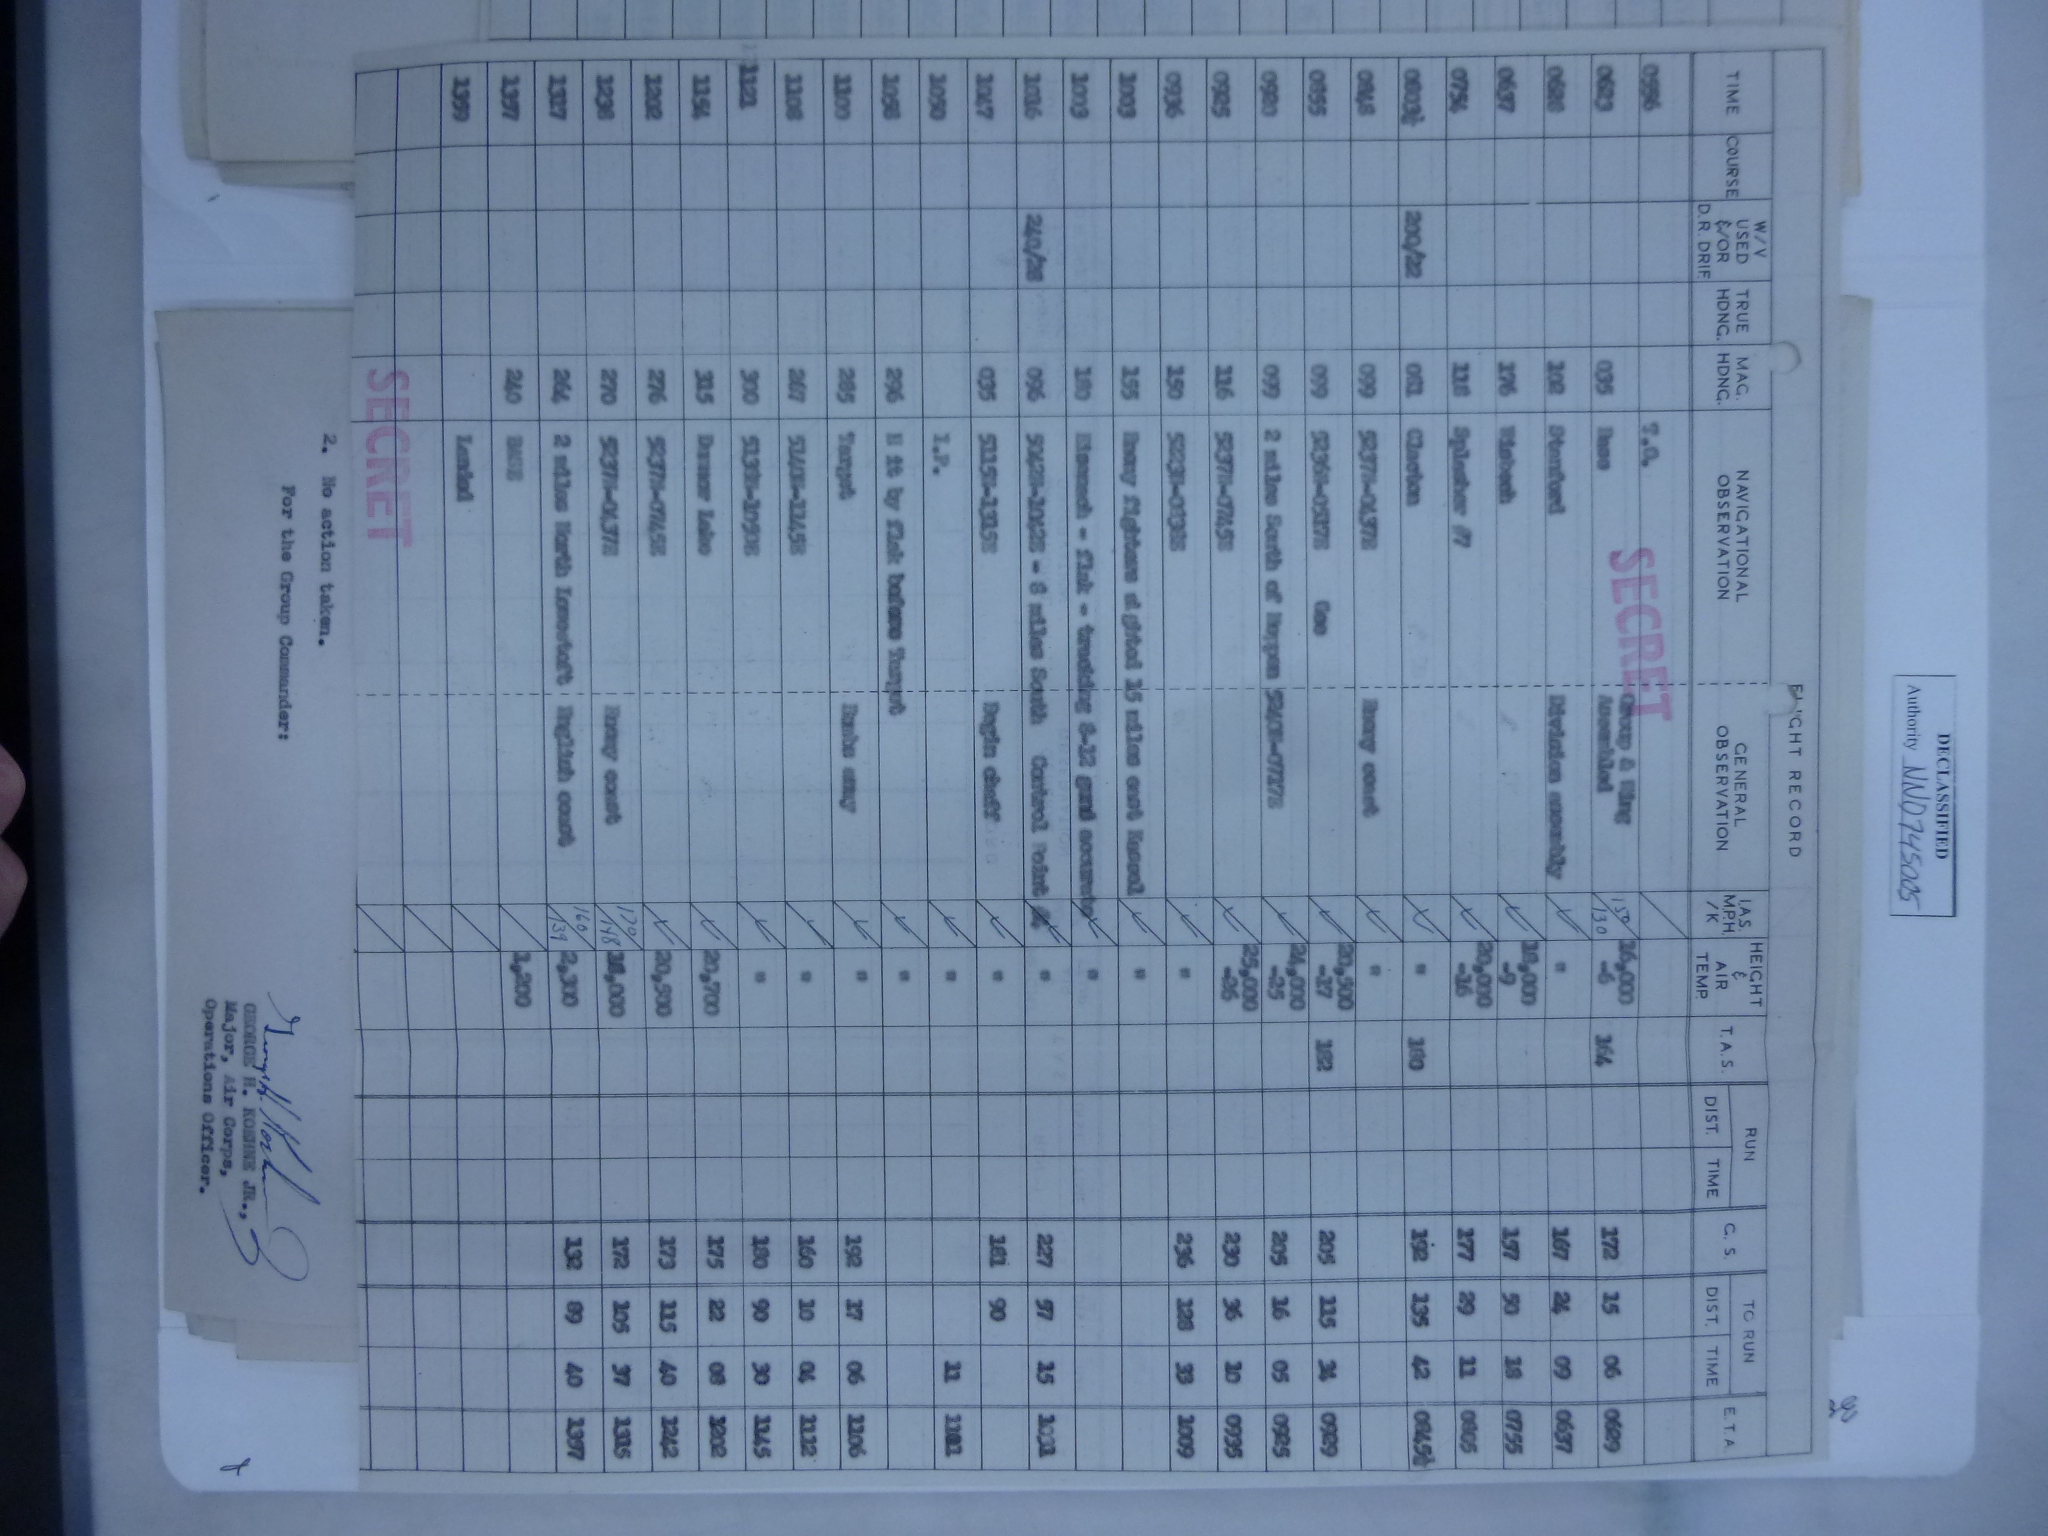 DECLASSIFIED
Authority NND745005
FLIGHT RECORD
TIME COURSE W/V USED &/OR D.R. DRIF. TRUE HDNG. MAG. HDNG. NAVIGATIONAL OBSERVATION GENERAL OBSERVATION I.A.S. M.P.H. /K HEIGHT & AIR TEMP. T.A.S. RUN DIST. TIME G. S. TO RUN DIST. TIME E.T.A
SECRET
T.O.
0623 035 Base Group & Wing Assembled 150/130 16,000 -6 164 172 15 06 0629
0628 102 Stamford Division assembly " 167 24 09 0637
0637 176 Wisbech 18,000 -9 157 50 18 0755
0754 118 Splasher #7 20,000 -16 177 29 11 0805
0803½ 200/22 081 Clacton " 180 192 135 42 0845½
0848 099 5237N-0437E Enemy coast "
0855 099 5236N-0517E Gee 20,500 -17 182 205 115 34 0929
0920 099 2 miles South of Meppen 5240N-0717E 24,000 -25 205 16 05 0925
0925 116 5237N-0745E 25,000 -26 230 36 10 0935
0936 150 5223N-0838E " 236 128 33 1009
1003 155 Enemy fighters sighted 15 miles east Kassel "
1013 180 Eisenach - flak - tracking 8-12 gund accurate "
1016 240/28 096 5042N-1042E - 8 miles South Control Point " 227 57 15 1031
1047 035 5115N-1315E Begin chaff " 181 90
1050 I.P. " 11 1101
1058 296 H it by flak before Target "
1100 285 Target Bombs away " 192 17 06 1106
1108 267 5141N-1145E " 160 10 04 1112
1121 300 5139N-1050E " 180 90 30 1145
1154 315 Dummer Lake 20,700 175 22 08 1202
1202 276 5237N-0745E 20,500 173 115 40 1242
1238 270 5237N-0437E Enemy coast 170/148 18,000 172 105 37 1315
1317 264 2 miles North Lowestoft English coast 160/139 2,300 132 89 40 1357
1357 240 BASE 1,200
1359 Landed
SECRET
2. No action taken.
For the Group Commander:
GEORGE H. KOEHNE JR.,
Major, Air Corps,
Operations Officer.